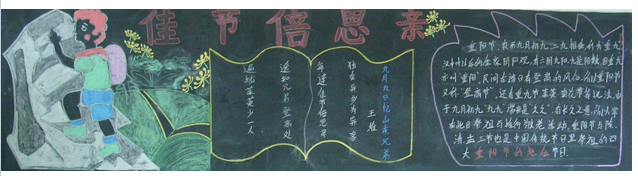 佳节倍思亲
九月九日忆山东兄弟
王维
独在异乡为异客
每逢佳节倍思亲
遥知兄弟登高处
遍插茱萸少一人
重阳节,农历九月初九,二九相重,称为"重九"
汉中叶以后的儒家阴阳观,有六阴九阳。九是阳数,固重九
亦叫"重阳"。民间在该日有登高的风俗,所以重阳节
又称"登高节"。还有重九节、茱萸、菊花节等说法。由
于九月初九"九九"谐音是"久久",有长久之意,所以常
在此日祭祖与推行敬老活动。重阳节与除、
清、盂三节也是中国传统节日里祭祖的四
大重阳节的起源节日.